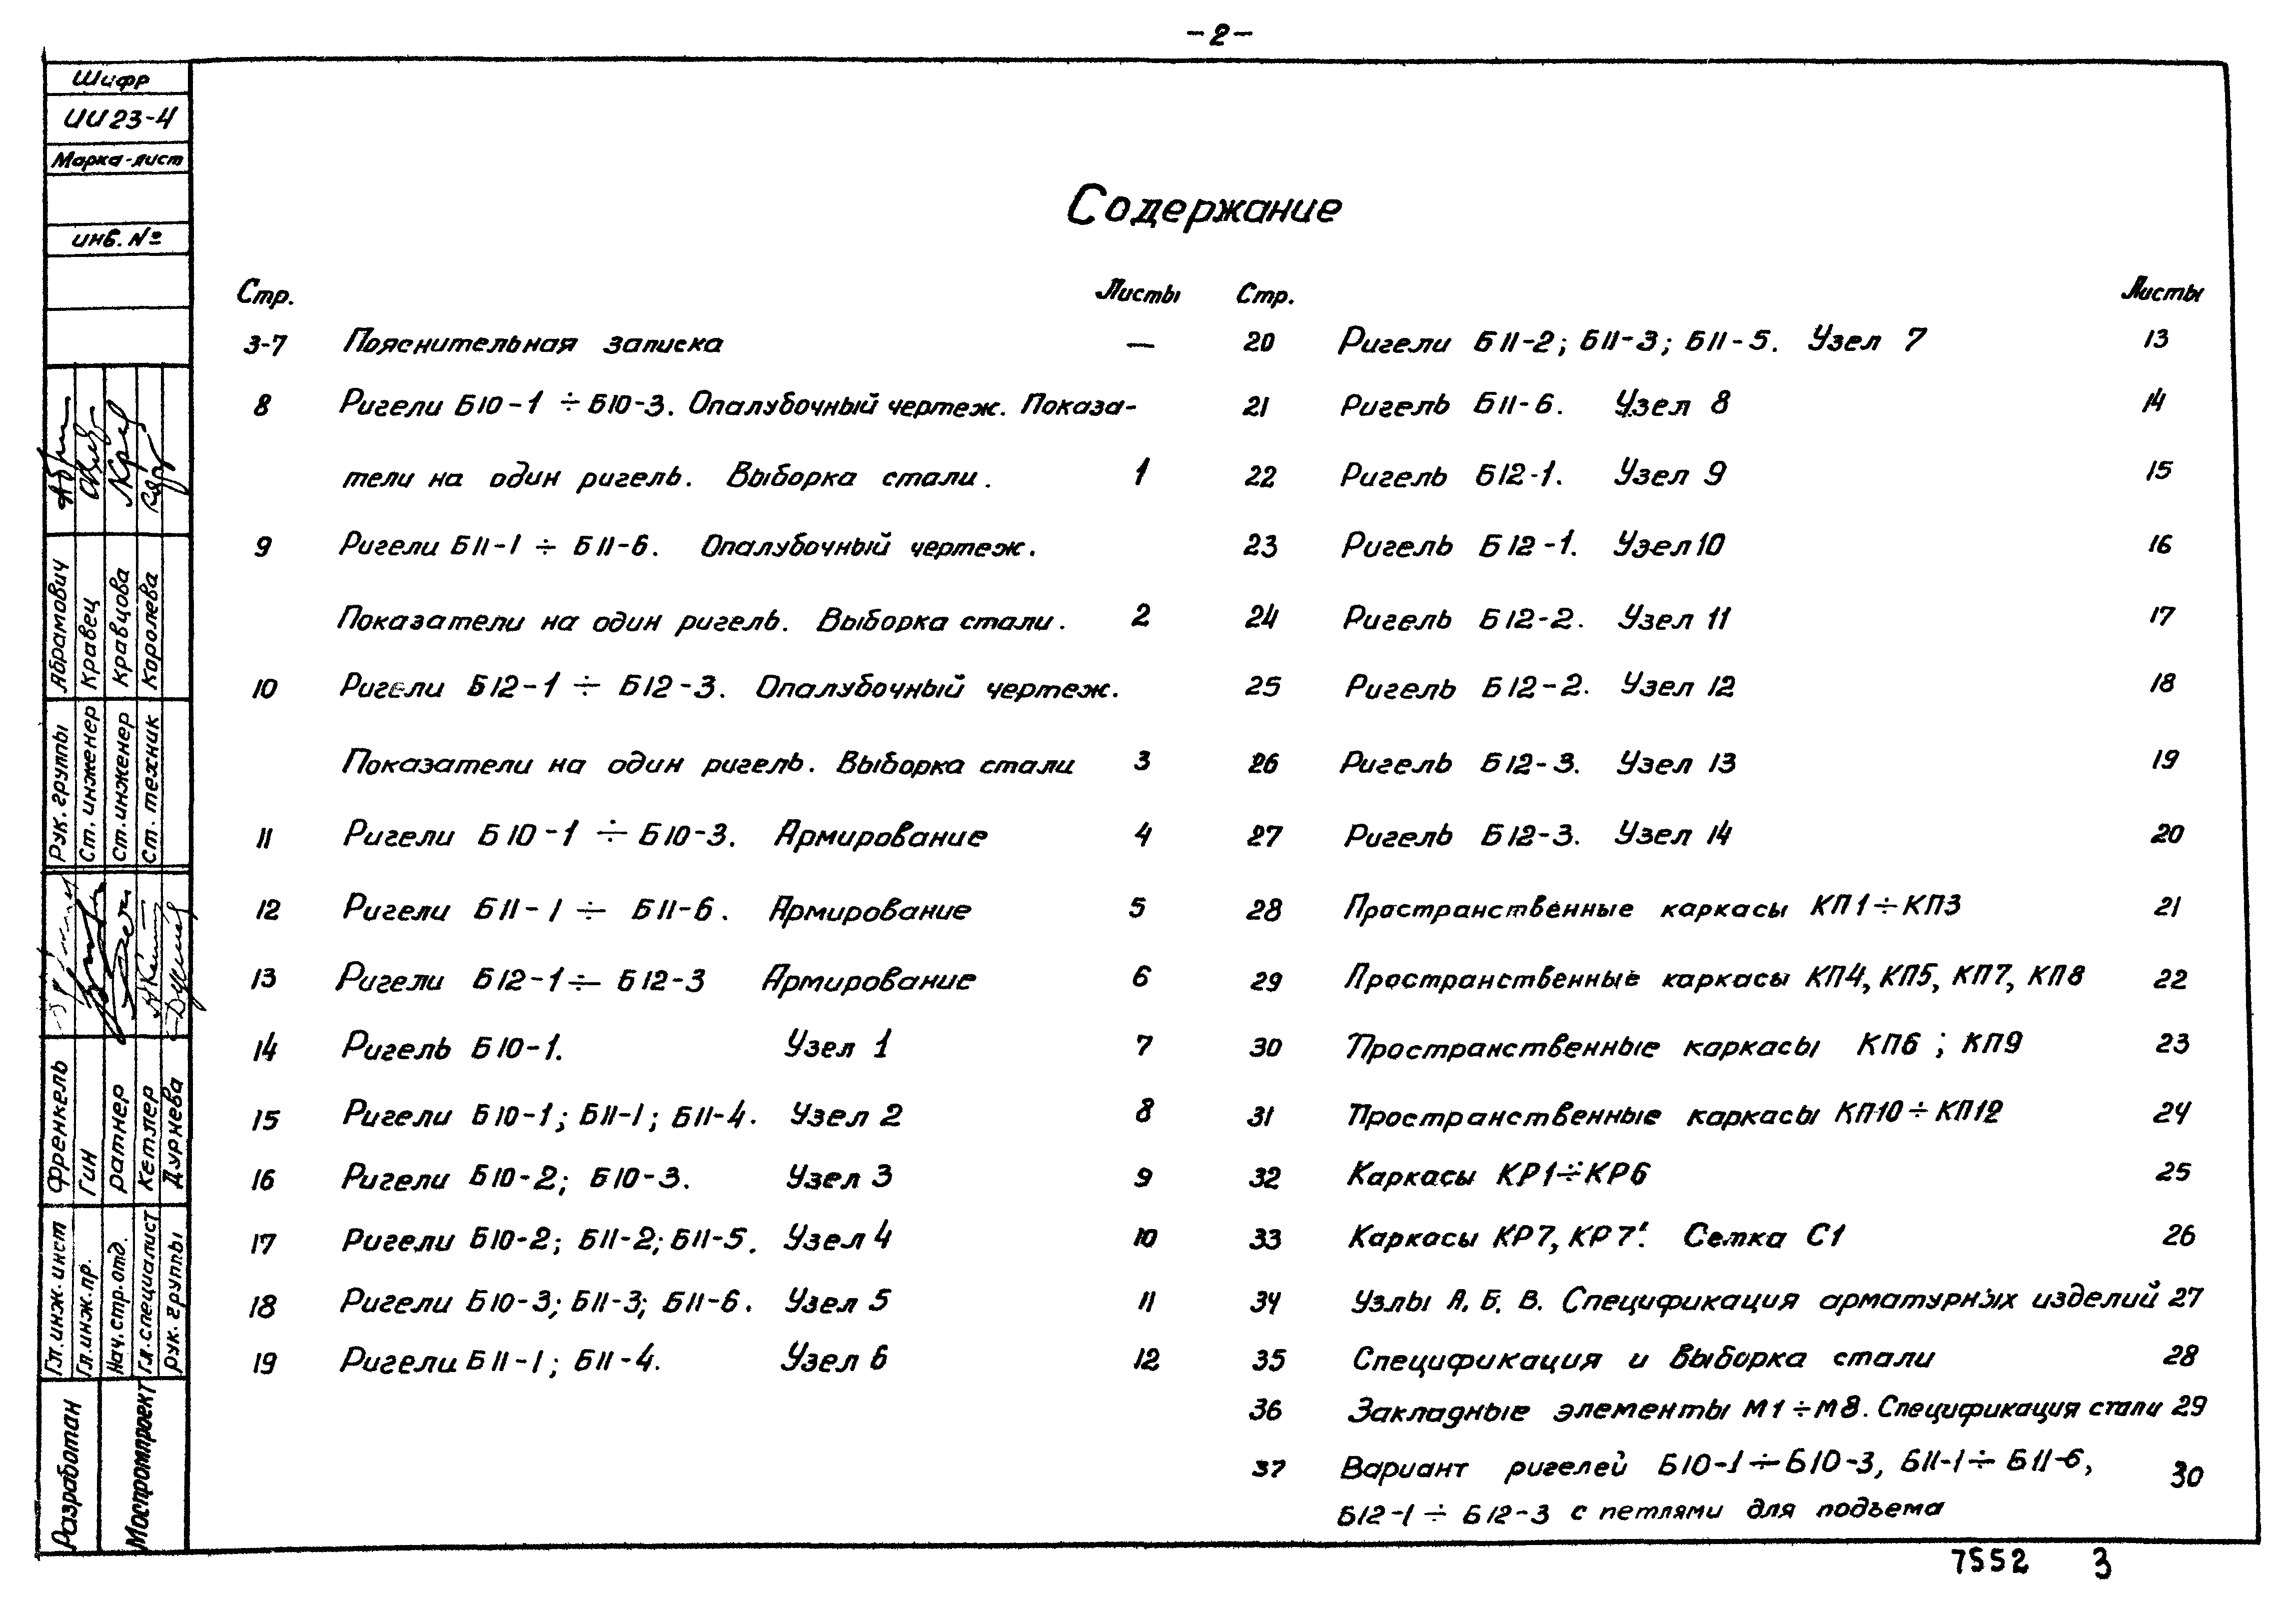 -2-
Шифр
ИИ 23-4
Марка-лист
инв. №
Содержание
Стр. Листы
3-7 Пояснительная записка —
8 Ригели Б10-1 ÷ Б10-3. Опалубочный чертеж. Показа-
тели на один ригель. Выборка стали. 1
9 Ригели Б11-1 ÷ Б11-6. Опалубочный чертеж.
Показатели на один ригель. Выборка стали. 2
10 Ригели Б12-1 ÷ Б12-3. Опалубочный чертеж.
Показатели на один ригель. Выборка стали 3
11 Ригели Б10-1 ÷ Б10-3. Армирование 4
12 Ригели Б11-1 ÷ Б11-6. Армирование 5
13 Ригели Б12-1 ÷ Б12-3 Армирование 6
14 Ригель Б10-1. Узел 1 7
15 Ригели Б10-1; Б11-1; Б11-4. Узел 2 8
16 Ригели Б10-2; Б10-3. Узел 3 9
17 Ригели Б10-2; Б11-2; Б11-5. Узел 4 10
18 Ригели Б10-3; Б11-3; Б11-6. Узел 5 11
19 Ригели Б11-1; Б11-4. Узел 6 12
Стр. Листы
20 Ригели Б11-2; Б11-3; Б11-5. Узел 7 13
21 Ригель Б11-6. Узел 8 14
22 Ригель Б12-1. Узел 9 15
23 Ригель Б12-1. Узел 10 16
24 Ригель Б12-2. Узел 11 17
25 Ригель Б12-2. Узел 12 18
26 Ригель Б12-3. Узел 13 19
27 Ригель Б12-3. Узел 14 20
28 Пространственные каркасы КП1÷КП3 21
29 Пространственные каркасы КП4, КП5, КП7, КП8 22
30 Пространственные каркасы КП6; КП9 23
31 Пространственные каркасы КП10÷КП12 24
32 Каркасы КР1÷КР6 25
33 Каркасы КР7, КР7'. Сетка С1 26
34 Узлы А. Б. В. Спецификация арматурных изделий 27
35 Спецификация и выборка стали 28
36 Закладные элементы М1÷М8. Спецификация стали 29
37 Вариант ригелей Б10-1÷Б10-3, Б11-1÷Б11-6, 30
Б12-1 ÷ Б12-3 с петлями для подъема
Рук. группы Абрамович
Ст. инженер Кравец
Ст. инженер Кравцова
Ст. техник Королева
Гл. инж. инст Френкель
Гл. инж. пр. Гин
Нач. стр. отд. Ратнер
Гл. специалист Кетлер
Рук. группы Дурнева
Разработан
Моспромпроект
7552 3